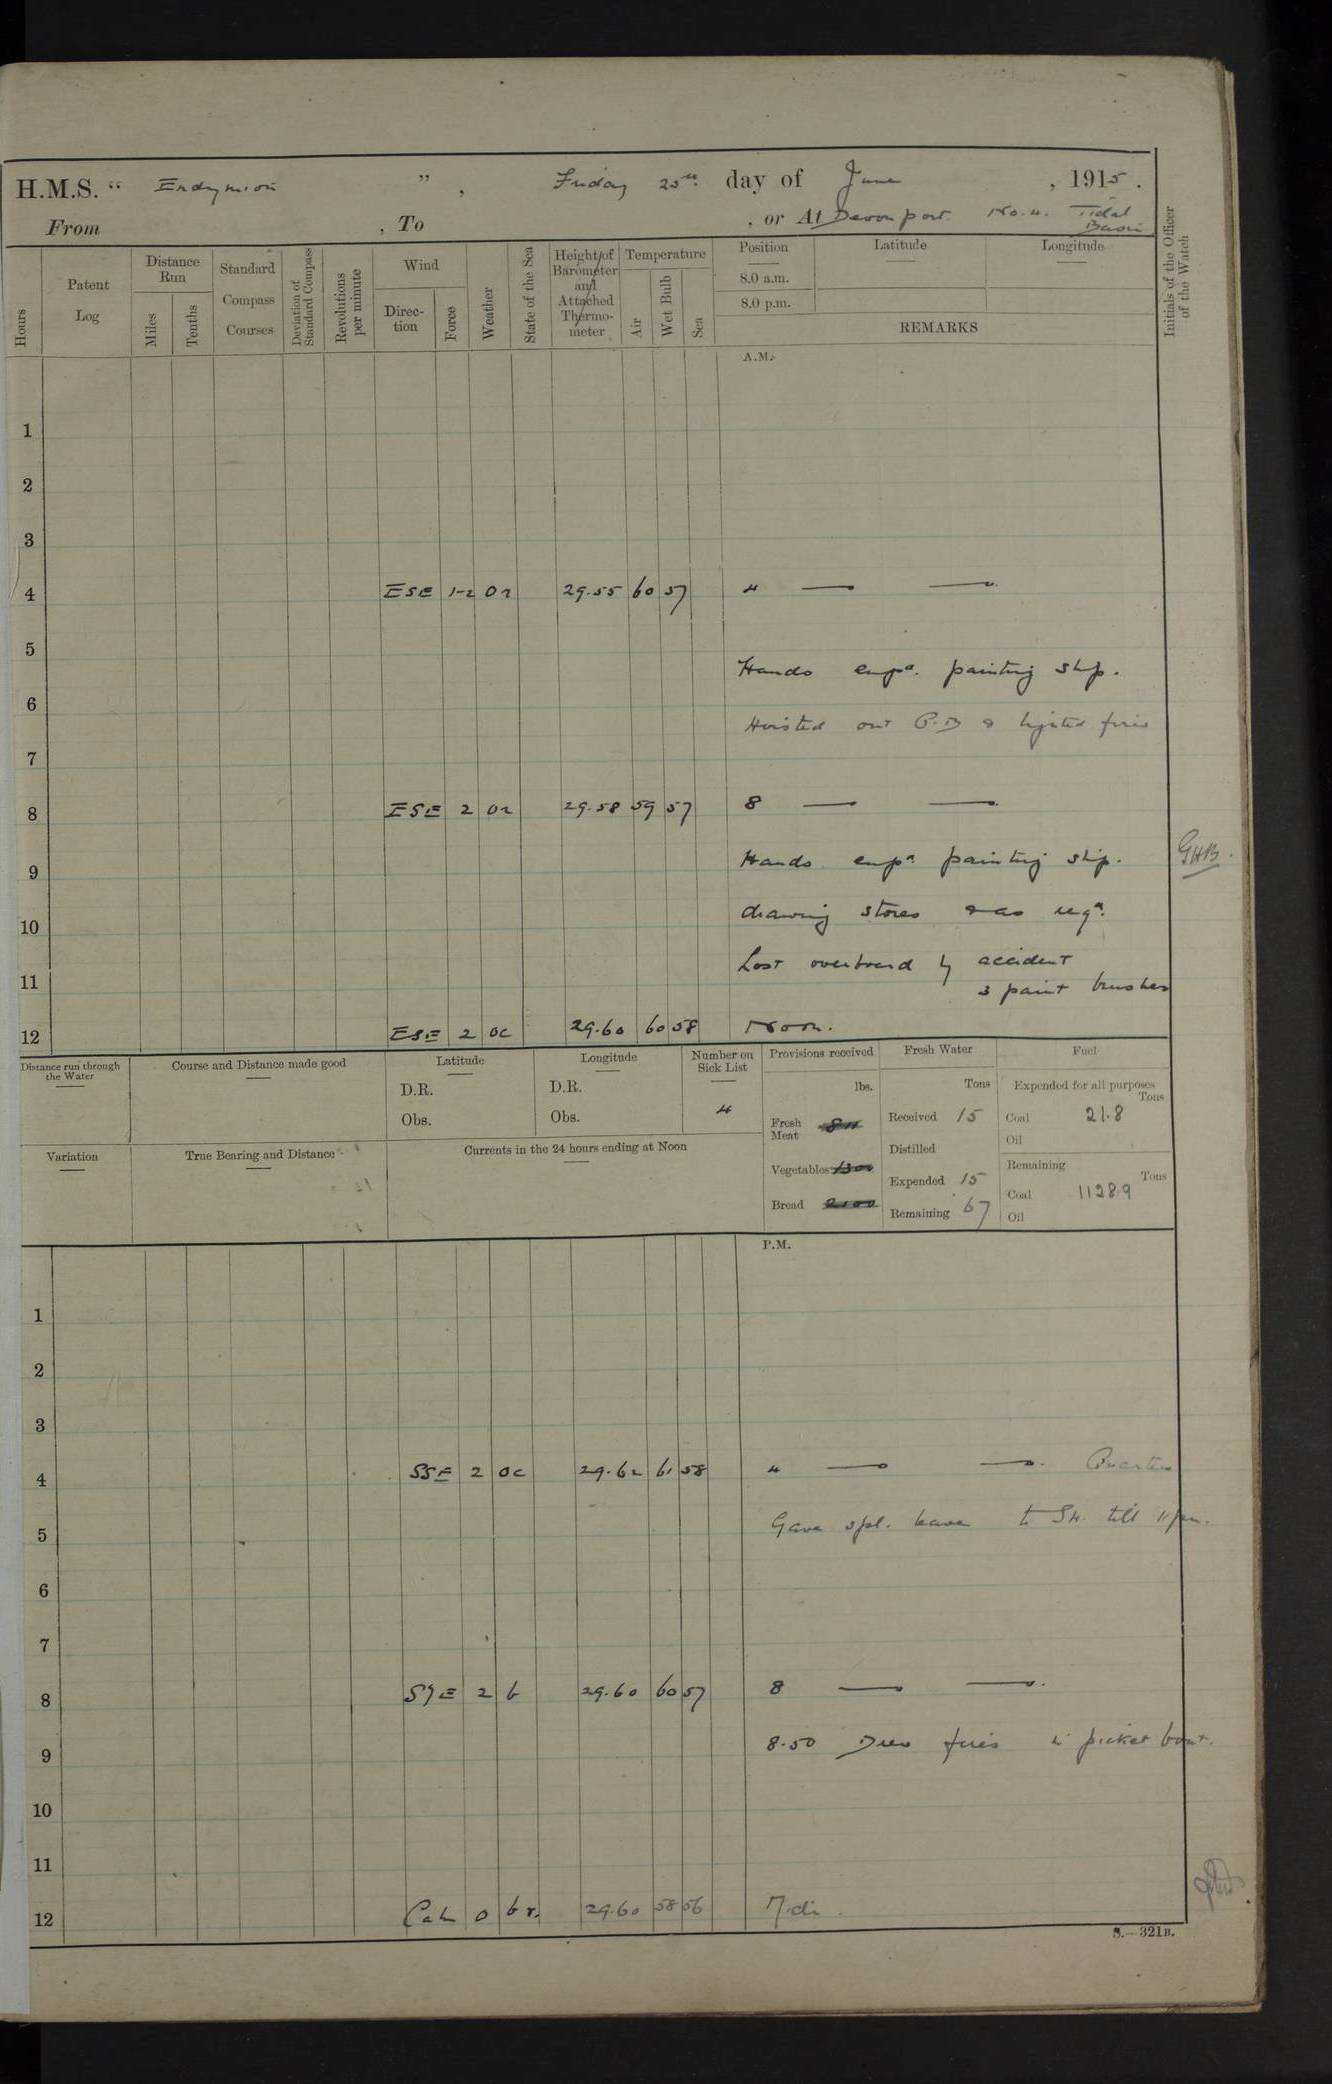 H.M.S. " Endymion ", Friday 25th day of June, 1915.
From , To , or At Devonport. No. 4. Tidal Basin
Hours
Patent Log
Distance Run
Miles
Tenths
Standard Compass Courses
Deviation of Standard Compass
Revolutions per minute
Wind
Direction
Force
Weather
State of the Sea
Height of Barometer and Attached Thermometer
Temperature
Air
Wet Bulb
Sea
Position
8.0 a.m.
8.0 p.m.
Latitude
Longitude
REMARKS
Initials of the Officer of the Watch
A.M.
1
2
3
4 ESE 1-2 Or 29.55 60 57 4 — —
5
Hands empd. painting ship.
6
Hoisted out P.B & lighted fires
7
8 ESE 2 Or 29.58 59 57 8 — —
Hands empd painting ship. GHB.
9
drawing stores & as reqd.
10
Lost overboard by accident
11
3 paint brushes
12 ESE 2 oc 29.60 60 58 Noon.
Distance run through the Water
Course and Distance made good
Latitude
D.R.
Obs.
Longitude
D.R.
Obs.
Number on Sick List
4
Provisions received
lbs.
Fresh Meat
Vegetables
Bread 2100
Fresh Water
Tons
Received 15
Distilled
Expended 15
Remaining 67
Fuel
Expended for all purposes
Tons
Coal 21.8
Oil
Remaining
Tons
Coal 1128.9
Oil
Variation
True Bearing and Distance
Currents in the 24 hours ending at Noon
P.M.
1
2
3
4 SSE 2 oc 29.62 61 58 4 — —. Quarters
Gave spl. leave to St. till 11 pm.
5
6
7
8 SSE 2 b 29.60 60 57 8 — —.
8.50 Drew fires in picket boat.
9
10
11
12 Calm 0 br. 29.60 58 56 Mdt.
S.—321B.